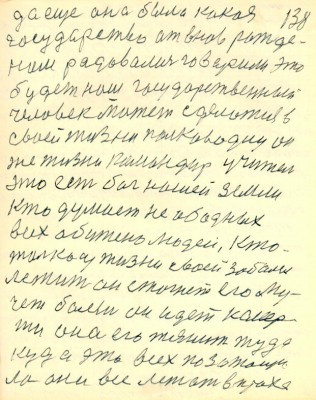 да еще она была какая 138
государство от внов рожде-
ном радовался говарили это
будет ном государственный
человек может сделотся в
своей жизни полководцу он
же жизни командир учител
это ест бог нашей земли
кто думает не об одных
всех обижено людей, кто-
толко у жизни своей забали
летит он стогнет его му-
чет боли он идет
она его туда
куда это всех
ла они все летат в праха